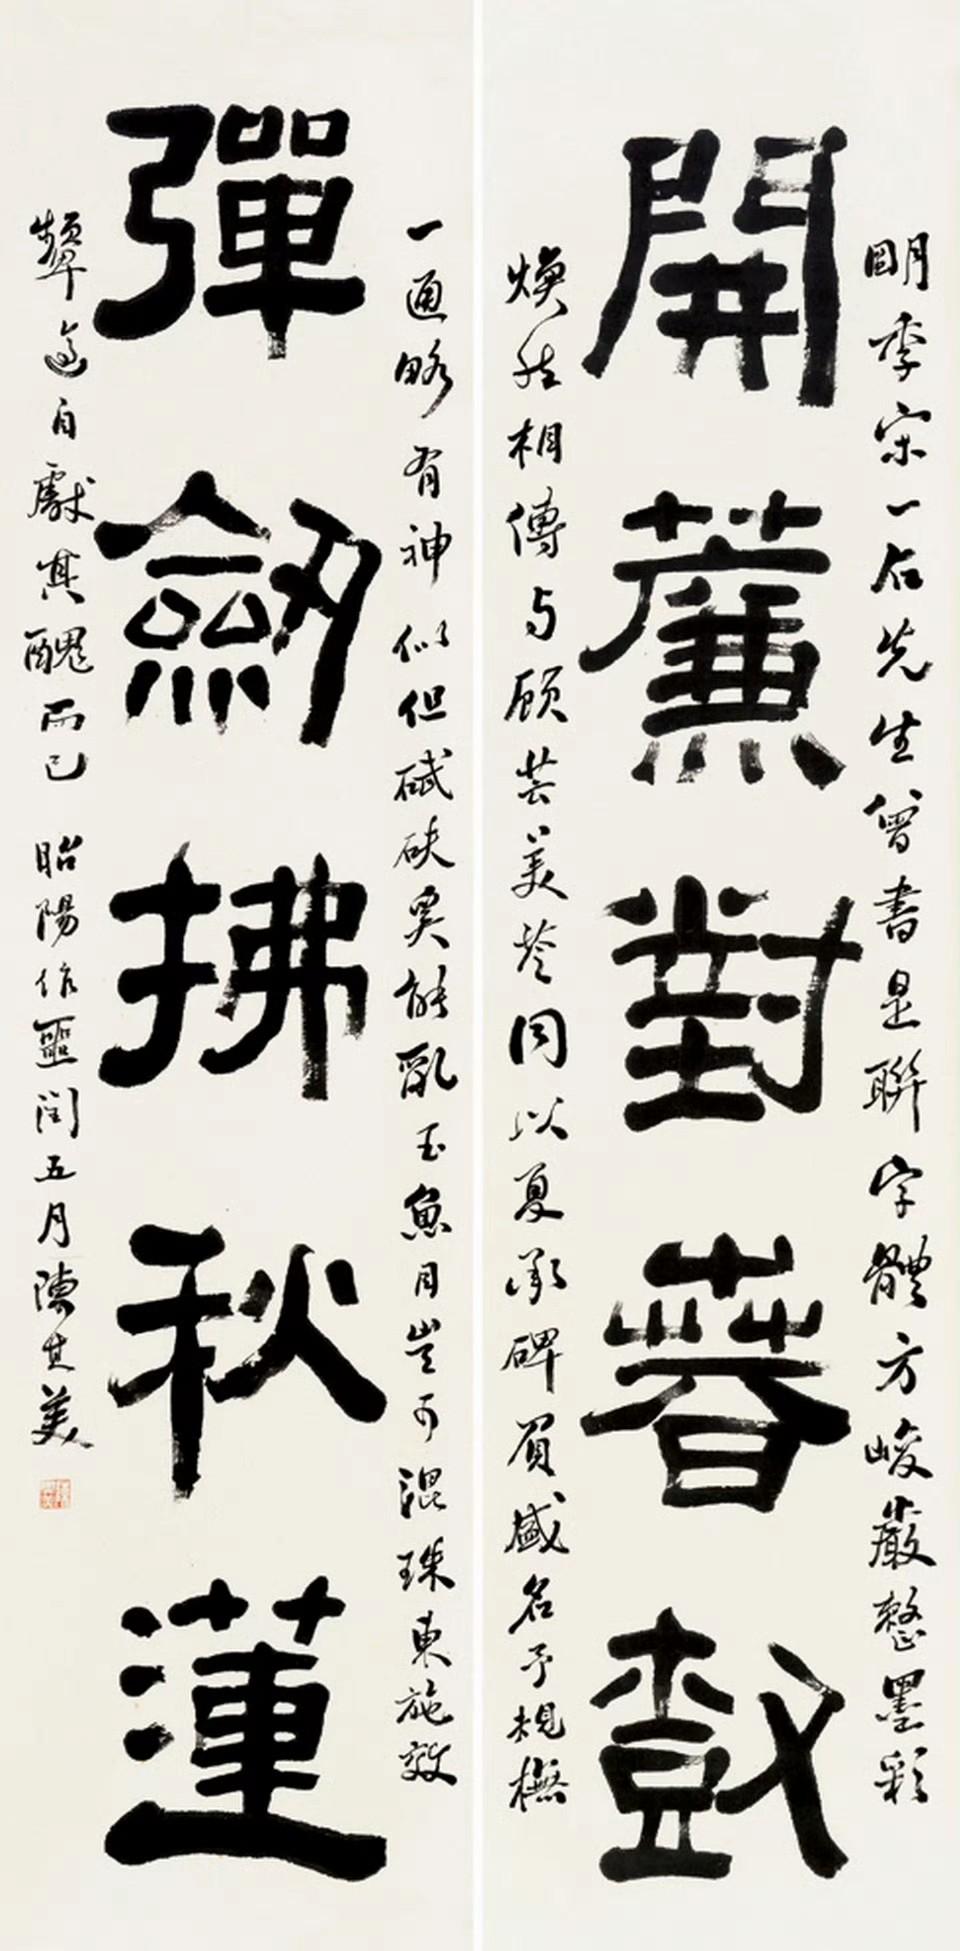 開簾對春樹
明季宋一石先生曾書是聯字體方峻嚴整墨彩
煥然相傳与顧芸美苓同以夏承碑負盛名予規橅
彈劍拂秋蓮
一通略有神似但碔砆奚能亂玉魚目豈可混珠東施效
顰適自獻其醜而已 昭陽作噩閏五月陳其美